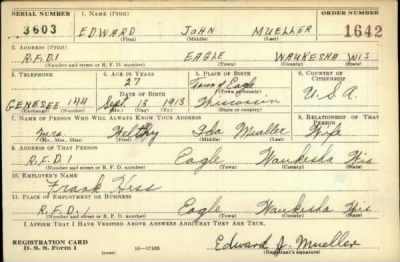 SERIAL NUMBER 1. NAME (Print) ORDER NUMBER
3603 EDWARD JOHN MUELLER 1642
(First) (Middle) (Last)
2. ADDRESS (Print)
R.F.D.1 EAGLE WAUKESHA WIS
(Number and street or R. F. D. number) (Town) (County) (State)
3. TELEPHONE 4. AGE IN YEARS 5. PLACE OF BIRTH 6. COUNTRY OF CITIZENSHIP
27 Town of Eagle
(Town or county)
DATE OF BIRTH
GENESEE 144 Sept. 13 1913 Wisconsin U.S.A.
(Exchange) (Number) (Mo.) (Day) (Yr.) (State or country)
7. NAME OF PERSON WHO WILL ALWAYS KNOW YOUR ADDRESS 8. RELATIONSHIP OF THAT PERSON
Mrs. Ida Mueller Wife
(Mr., Mrs., Miss) (First) (Middle) (Last)
9. ADDRESS OF THAT PERSON
R.F.D.1 Eagle Waukesha Wis
(Number and street or R. F. D. number) (Town) (County) (State)
10. EMPLOYER'S NAME
Frank Hess
11. PLACE OF EMPLOYMENT OR BUSINESS
R.F.D.1 Eagle Waukesha Wis
(Number and street or R. F. D. number) (Town) (County) (State)
I AFFIRM THAT I HAVE VERIFIED ABOVE ANSWERS AND THAT THEY ARE TRUE.
REGISTRATION CARD
D. S. S. Form 1 (over) 16—17105 Edward J. Mueller
(Registrant's signature)